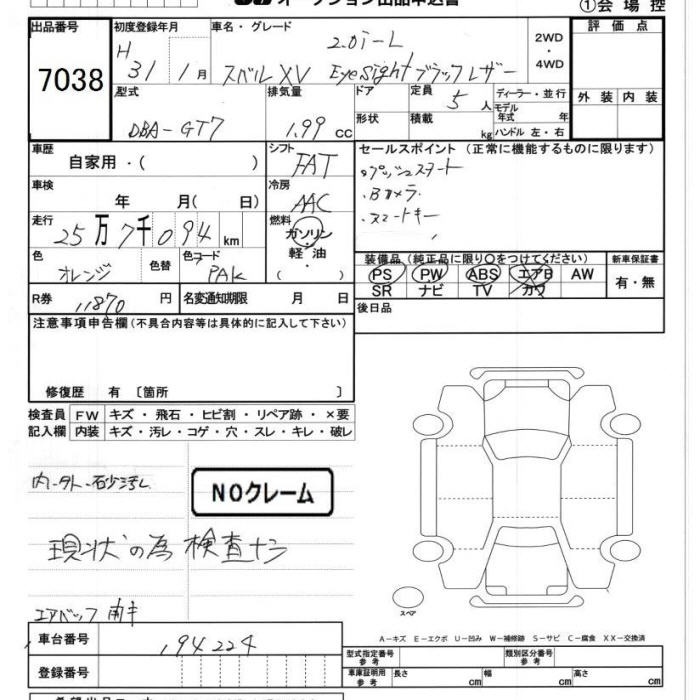 オークション出品申込書
①会場控
出品番号
7038
初度登録年月
H
31 / 1 月
車名・グレード
2.0i-L
スバル XV EyeSight ブラックレザー
2WD
・
4WD
評価点
外装 内装
型式
DBA-GT7
排気量
1.99 cc
ドア
形状
定員
5 人
積載
kg
ディーラー・並行
モデル
年式 年
ハンドル 左・右
車歴
自家用・( )
シフト
FAT
セールスポイント (正常に機能するものに限ります)
・プッシュスタート
・Bカメラ
・スマートキー
車検
年 月( 日)
冷房
AAC
走行
25万7千094 km
燃料
ガソリン
・
軽油
・
( )
色
オレンジ
色替
色コード
PAK
装備品 (純正品に限り○をつけてください)
PS PW ABS エアB AW
SR ナビ TV カワ
新車保証書
有・無
R券
11870 円
名変通知期限 月 日
後日品
注意事項申告欄 (不具合内容等は具体的に記入して下さい)
修復歴 有 〔箇所 〕
検査員
記入欄
FW キズ・飛石・ヒビ割・リペア跡・×要
内装 キズ・汚レ・コゲ・穴・スレ・キレ・破レ
内・外・石砂汚レ
NOクレーム
現状の為 検査ナシ
スペア
A－キズ E－エクボ U－凹み W－補修跡 S－サビ C－腐食 XX－交換済
車台番号
194224
登録番号
型式指定番号
参考
類別区分番号
参考
車庫証明用
参考
長さ cm
幅 cm
高さ cm